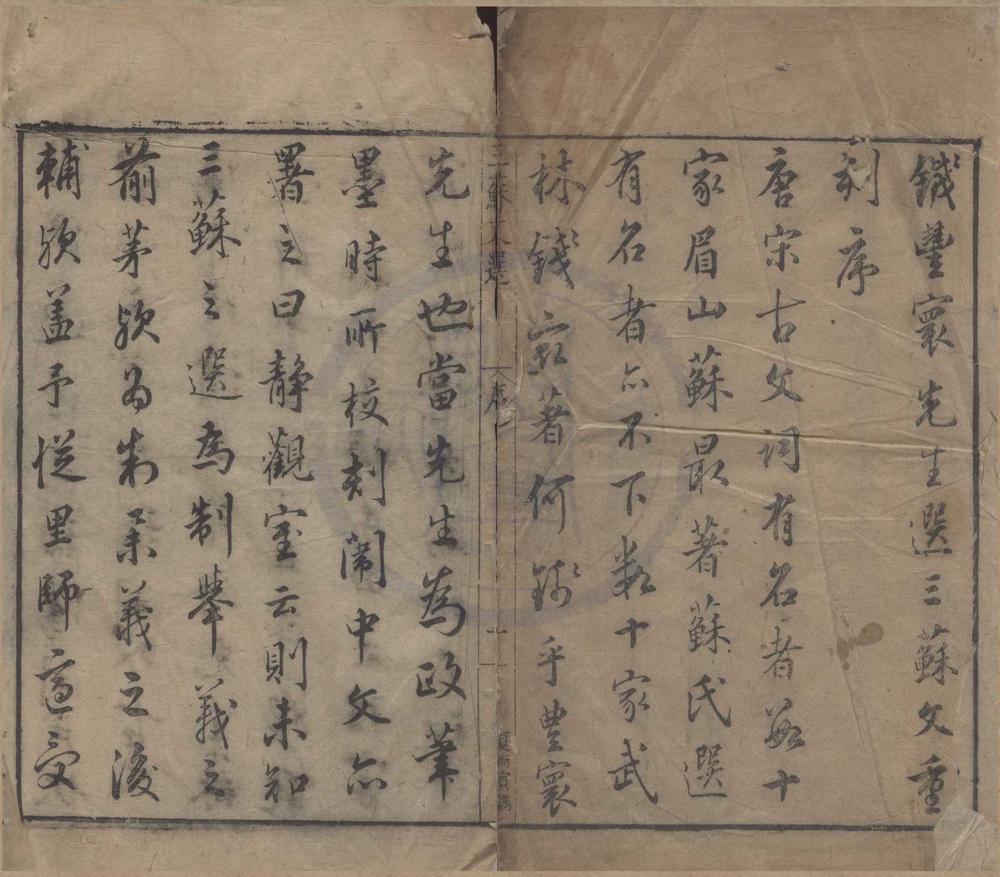 錢豐寰先生選三蘇文重
刻序
唐宋古文詞有名者數十
家眉山蘇最著蘇氏選
有名者亦不下數十家武
林錢最著何錢乎豐寰
三蘇文選 序 一 夏尚賓鐫
先生也當先生為政筆
墨時所校刻闈中文亦
署之曰靜觀室云則未知
三蘇之選為制舉義之
前茅歟為制舉義之後
輔歟蓋予從里師適受